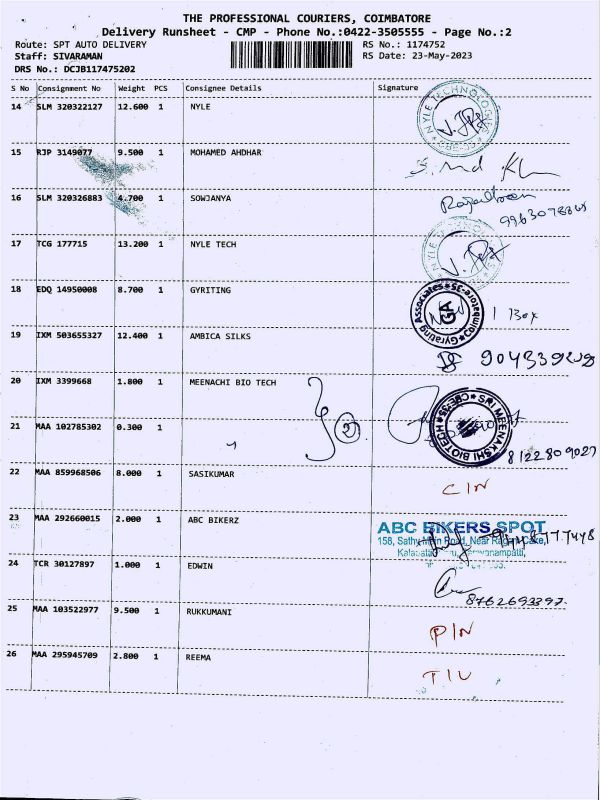 THE PROFESSIONAL COURIERS, COIMBATORE
Delivery Runsheet - CMP - Phone No.:0422-3505555 - Page No.:2
Route: SPT AUTO DELIVERY RS No.: 1174752
Staff: SIVARAMAN RS Date: 23-May-2023
DRS No.: DCJB117475202
S No Consignment No Weight PCS Consignee Details Signature
14 SLM 320322127 12.600 1 NYLE
NYLE TECHNOLOGIES
15 RJP 3149077 9.500 1 MOHAMED AHDHAR
16 SLM 320326883 4.700 1 SOWJANYA
17 TCG 177715 13.200 1 NYLE TECH
18 EDQ 14950008 8.700 1 GYRITING
Gyrating Associates Coimbatore-35 GA
1 Box
19 IXM 503655327 12.400 1 AMBICA SILKS
20 IXM 3399668 1.800 1 MEENACHI BIO TECH
SRI MEENAKSHI BIOTECH CBE-35
21 MAA 102785302 0.300 1
8122809027
22 MAA 859968506 8.000 1 SASIKUMAR
CIN
23 MAA 292660015 2.000 1 ABC BIKERZ
ABC BIKERS SPOT
158, Sathy Main Road, Near
24 TCR 30127897 1.000 1 EDWIN
8762693397
25 MAA 103522977 9.500 1 RUKKUMANI
PIN
26 MAA 295945709 2.800 1 REEMA
TIU